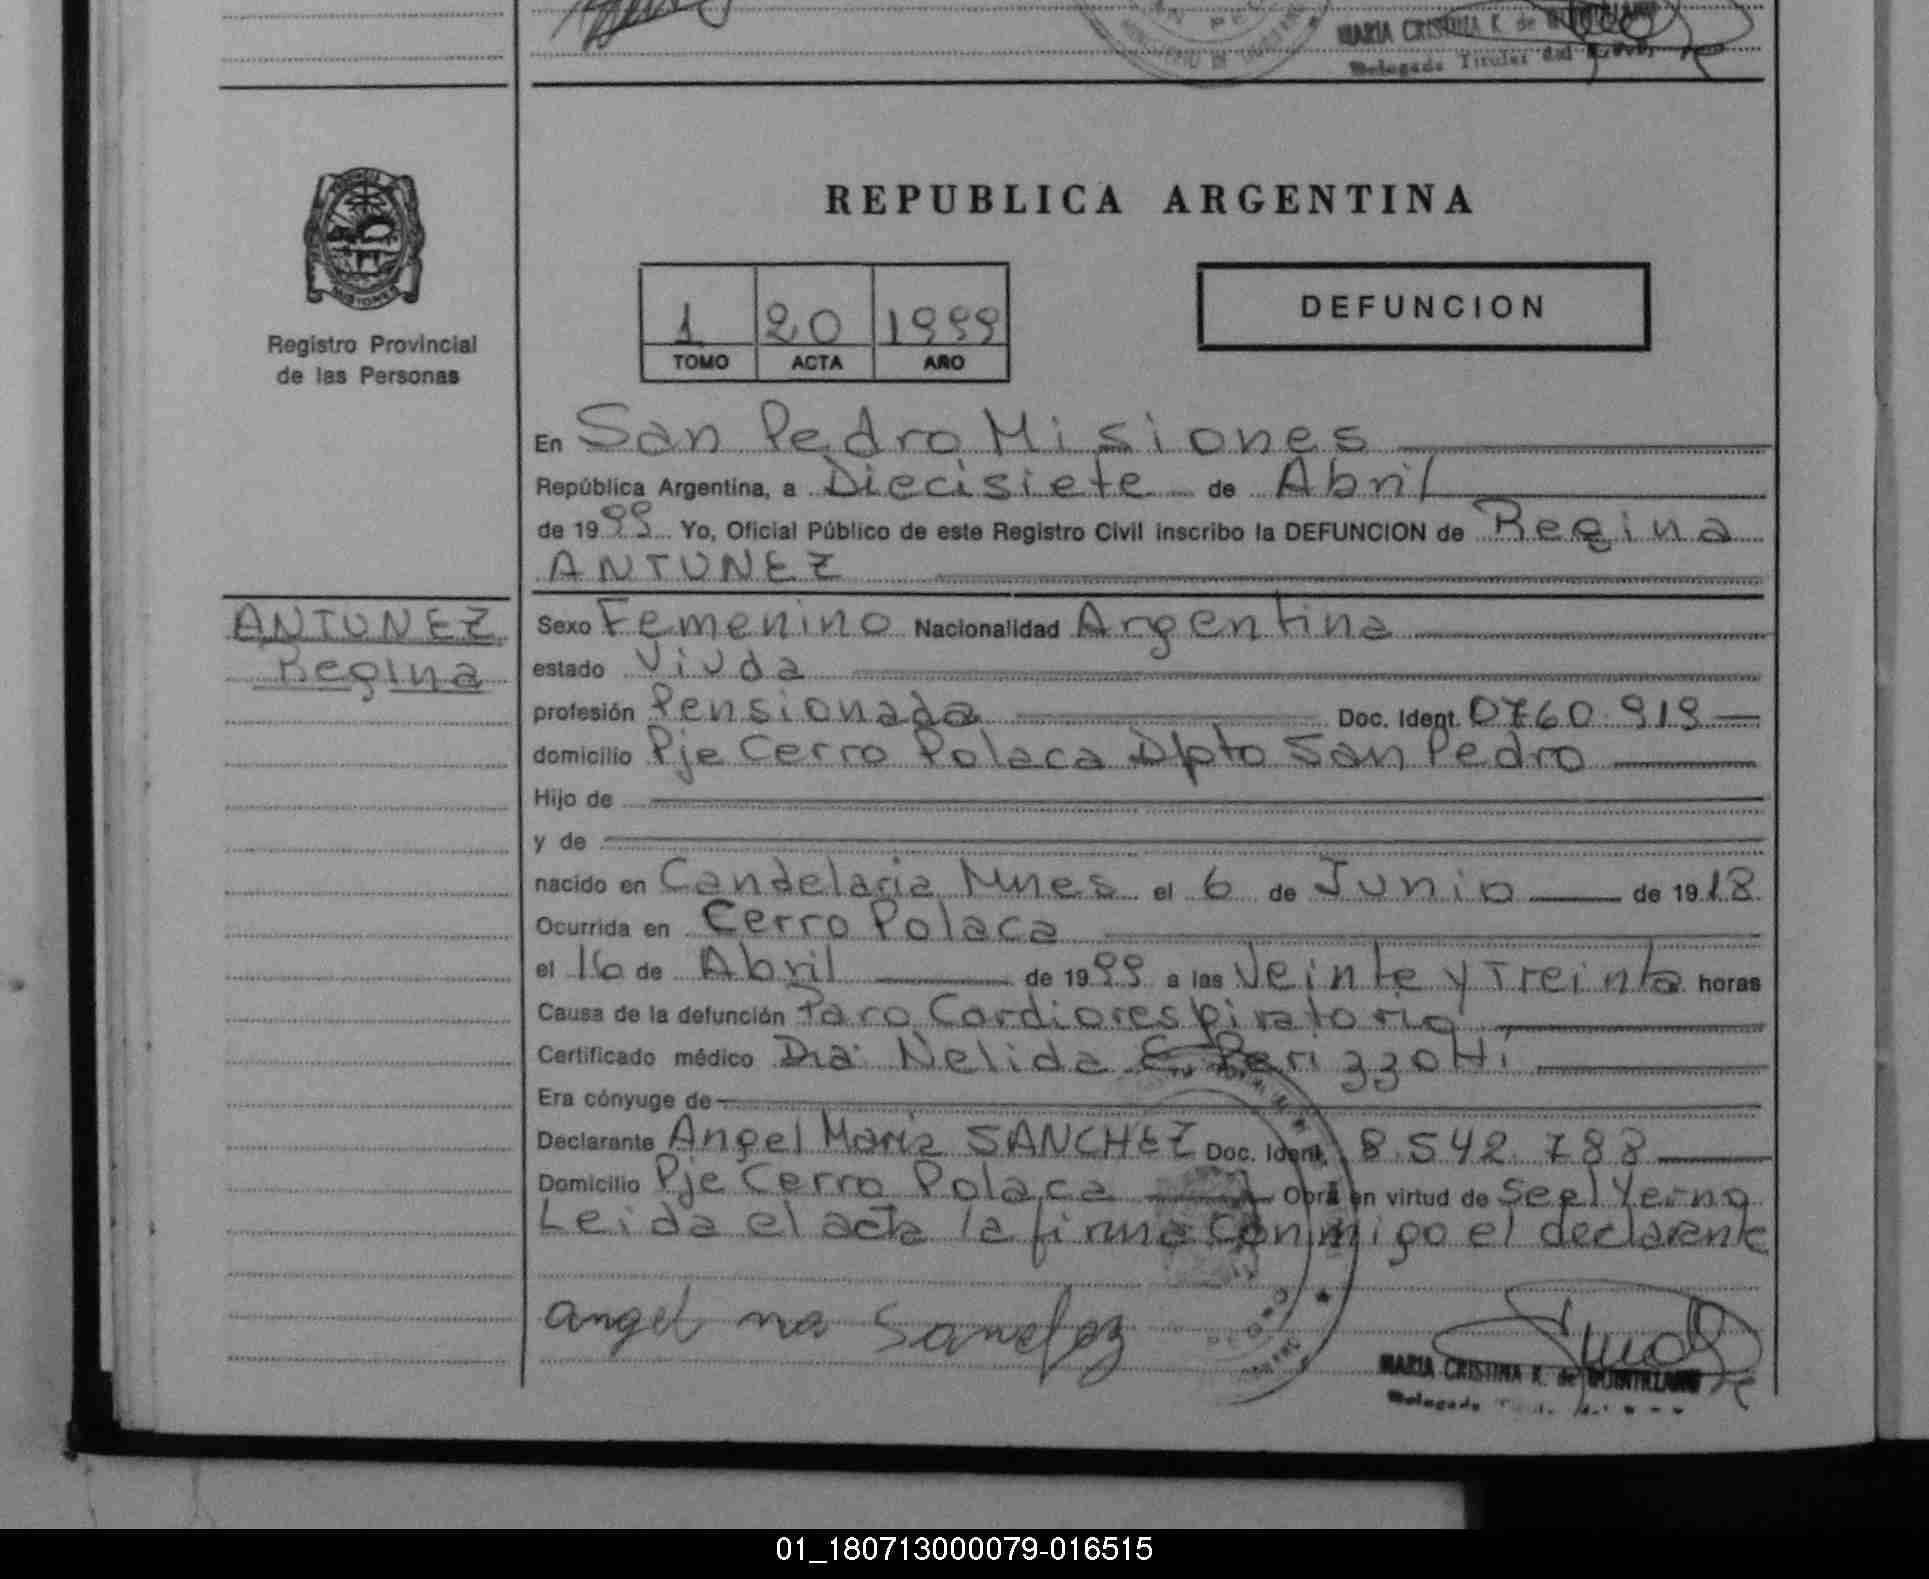 MARIA CRISTINA K. de QUINTILIANO
Delegado Titular del
PROVINCIA DE
MISIONES
Registro Provincial
de las Personas
REPUBLICA ARGENTINA
1 20 1999
TOMO ACTA AÑO
DEFUNCION
En San Pedro Misiones
República Argentina, a Diecisiete de Abril
de 1999 Yo, Oficial Público de este Registro Civil inscribo la DEFUNCION de Regina
ANTUNEZ
ANTUNEZ
Regina
Sexo Femenino Nacionalidad Argentina
estado Viuda
profesión Pensionada Doc. Ident. 0760.919
domicilio Pje Cerro Polaca Dpto San Pedro
Hijo de
y de
nacido en Candelaria Mnes el 6 de Junio de 1918
Ocurrida en Cerro Polaca
el 16 de Abril de 1999 a las Veinte y Treinta horas
Causa de la defunción Paro Cardiorespiratorio
Certificado médico Dra: Nelida E. Perizzotti
Era cónyuge de
Declarante Angel Maria SANCHEZ Doc. Ident. 8.542.788
Domicilio Pje Cerro Polaca Obra en virtud de Seel Yerno
Leida el acta la firma conmigo el declarante
angel ma Sanchez
MARIA CRISTINA K. de QUINTILIANO
01_180713000079-016515